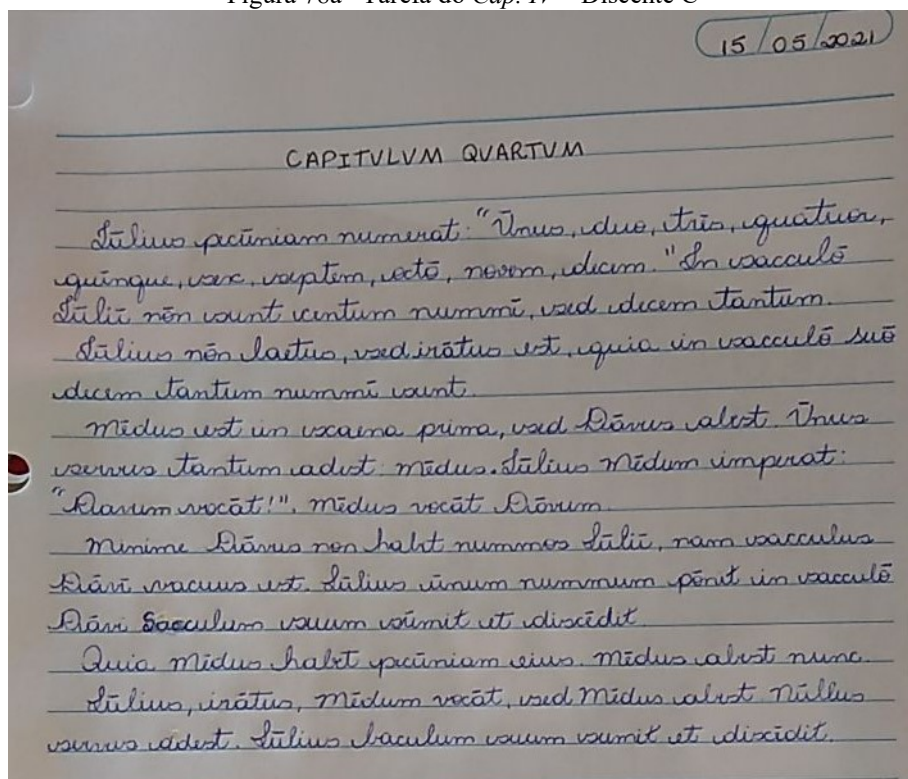 Figura 78a - Tarefa do Cap. IV - Discente C
15/05/2021
CAPITVLVM QVARTVM
Iūlius pecūniam numerat: "Ūnus, duo, trīs, quattuor,
quīnque, sex, septem, octō, novem, decem." In sacculō
Iūliī nōn sunt centum nummī, sed decem tantum.
Iūlius nōn laetus, sed īrātus est, quia in sacculō suō
decem tantum nummī sunt.
Mēdus est in scaena prima, sed Dāvus abest. Ūnus
servus tantum adest: Mēdus. Iūlius Mēdum imperat:
"Davum vocāt!". Mēdus vocāt Dāvum.
Minime Dāvus non habet nummos Iūliī, nam sacculus
Dāvī vacuus est. Iūlius ūnum nummum pōnit in sacculō
Dāvi Sacculum suum sūmit et discēdit.
Quia Mēdus habet pecūniam eius. Mēdus abest nunc.
Iūlius, irātus, Mēdum vocāt, sed Mēdus abest Nūllus
servus adest. Iūlius baculum suum sumit et discēdit.